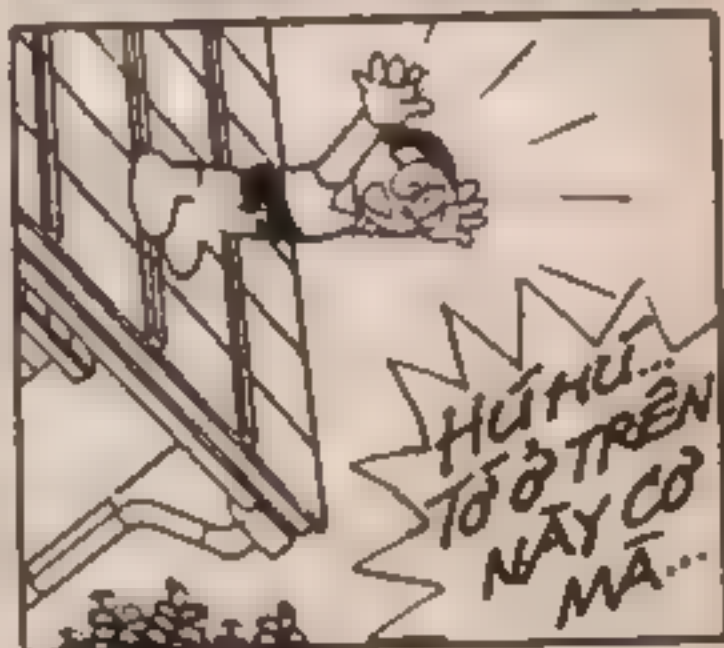 HÚ HÚ...
TỚ Ở TRÊN
NÀY CƠ
MÀ...